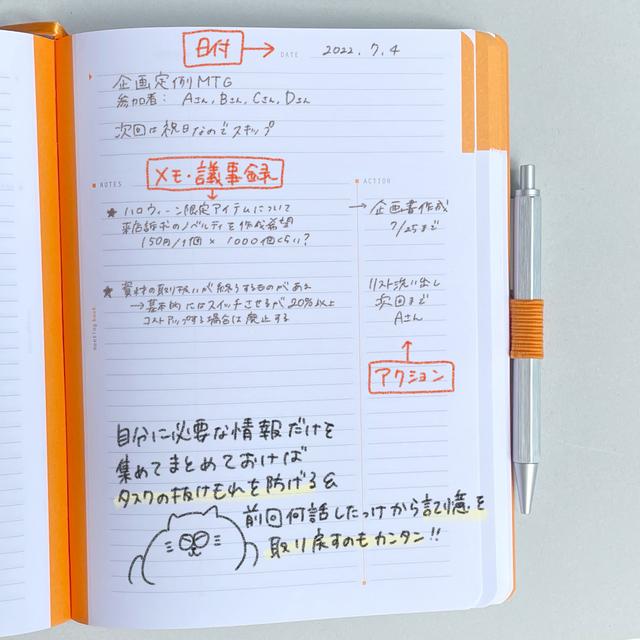 日付 → DATE 2022.7.4
企画定例MTG
参加者： Aさん, Bさん, Cさん, Dさん
次回は祝日なのでスキップ
メモ・議事録
NOTES
ACTION
★ ハロウィーン限定アイテムについて
来店訴求のノベルティを作成希望
150円/1個 × 1000個くらい?
→ 企画書作成
7/25まで
★ 資材の取り扱いが終了するものがある
→ 基本的にはスイッチさせるが20%以上
コストアップする場合は廃止する
リスト洗い出し
次回まで
Aさん
アクション
meeting book
自分に必要な情報だけを
集めてまとめておけば
タスクの抜けもれを防げる&
前回何話したっけから記憶を
取り戻すのもカンタン!!